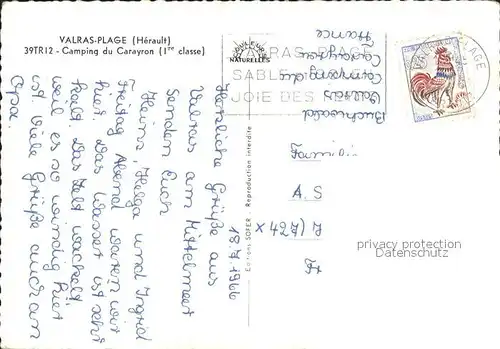 VALRAS-PLAGE (Hérault)
39TR12 - Camping du Carayron (1re classe)
COULEURS
NATURELLES
VALRAS-PLAGE
SABLE
JOIE DES
VALRAS PLAGE
Buchwald
Valras
Camping du
Carayron
France
18.7.1966
Herzliche Grüße aus
Valras am Mittelmeer
senden Euch
Heinz, Helga und Ingrid
Freitag Abend waren wir
hier. Das Wasser ist sehr
kalt. Das Zelt wackelt
weil es so windig hier
ist. Viele Grüße auch an
Opa.
Editions SOFER - Reproduction interdite
privacy protection
Datenschutz